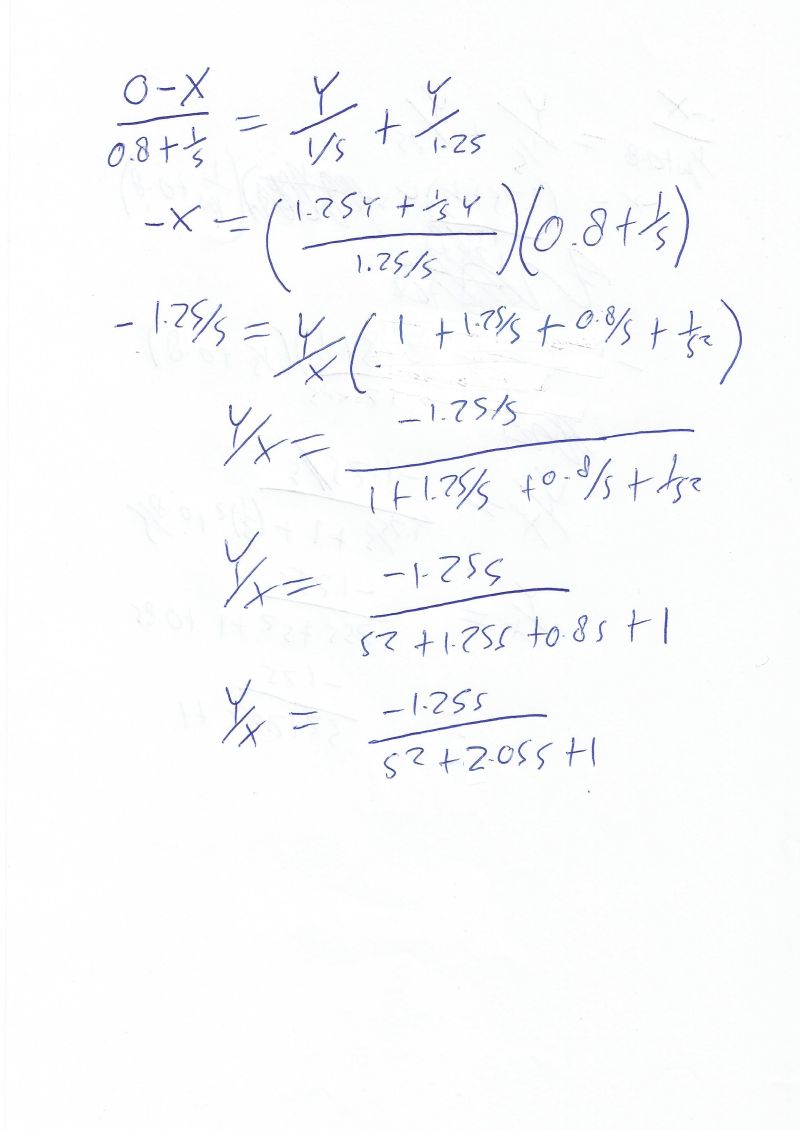 (0-X)/(0.8+1/s) = Y/(1/s) + Y/1.25
-X = ((1.25Y + 1/s Y)/(1.25/s))(0.8+1/s)
-1.25/s = Y/X (1 + 1.25/s + 0.8/s + 1/s²)
Y/X = (-1.25/s)/(1+1.25/s +0.8/s + 1/s²)
Y/X = (-1.25s)/(s² + 1.25s +0.8s +1)
Y/X = (-1.25s)/(s² + 2.05s +1)